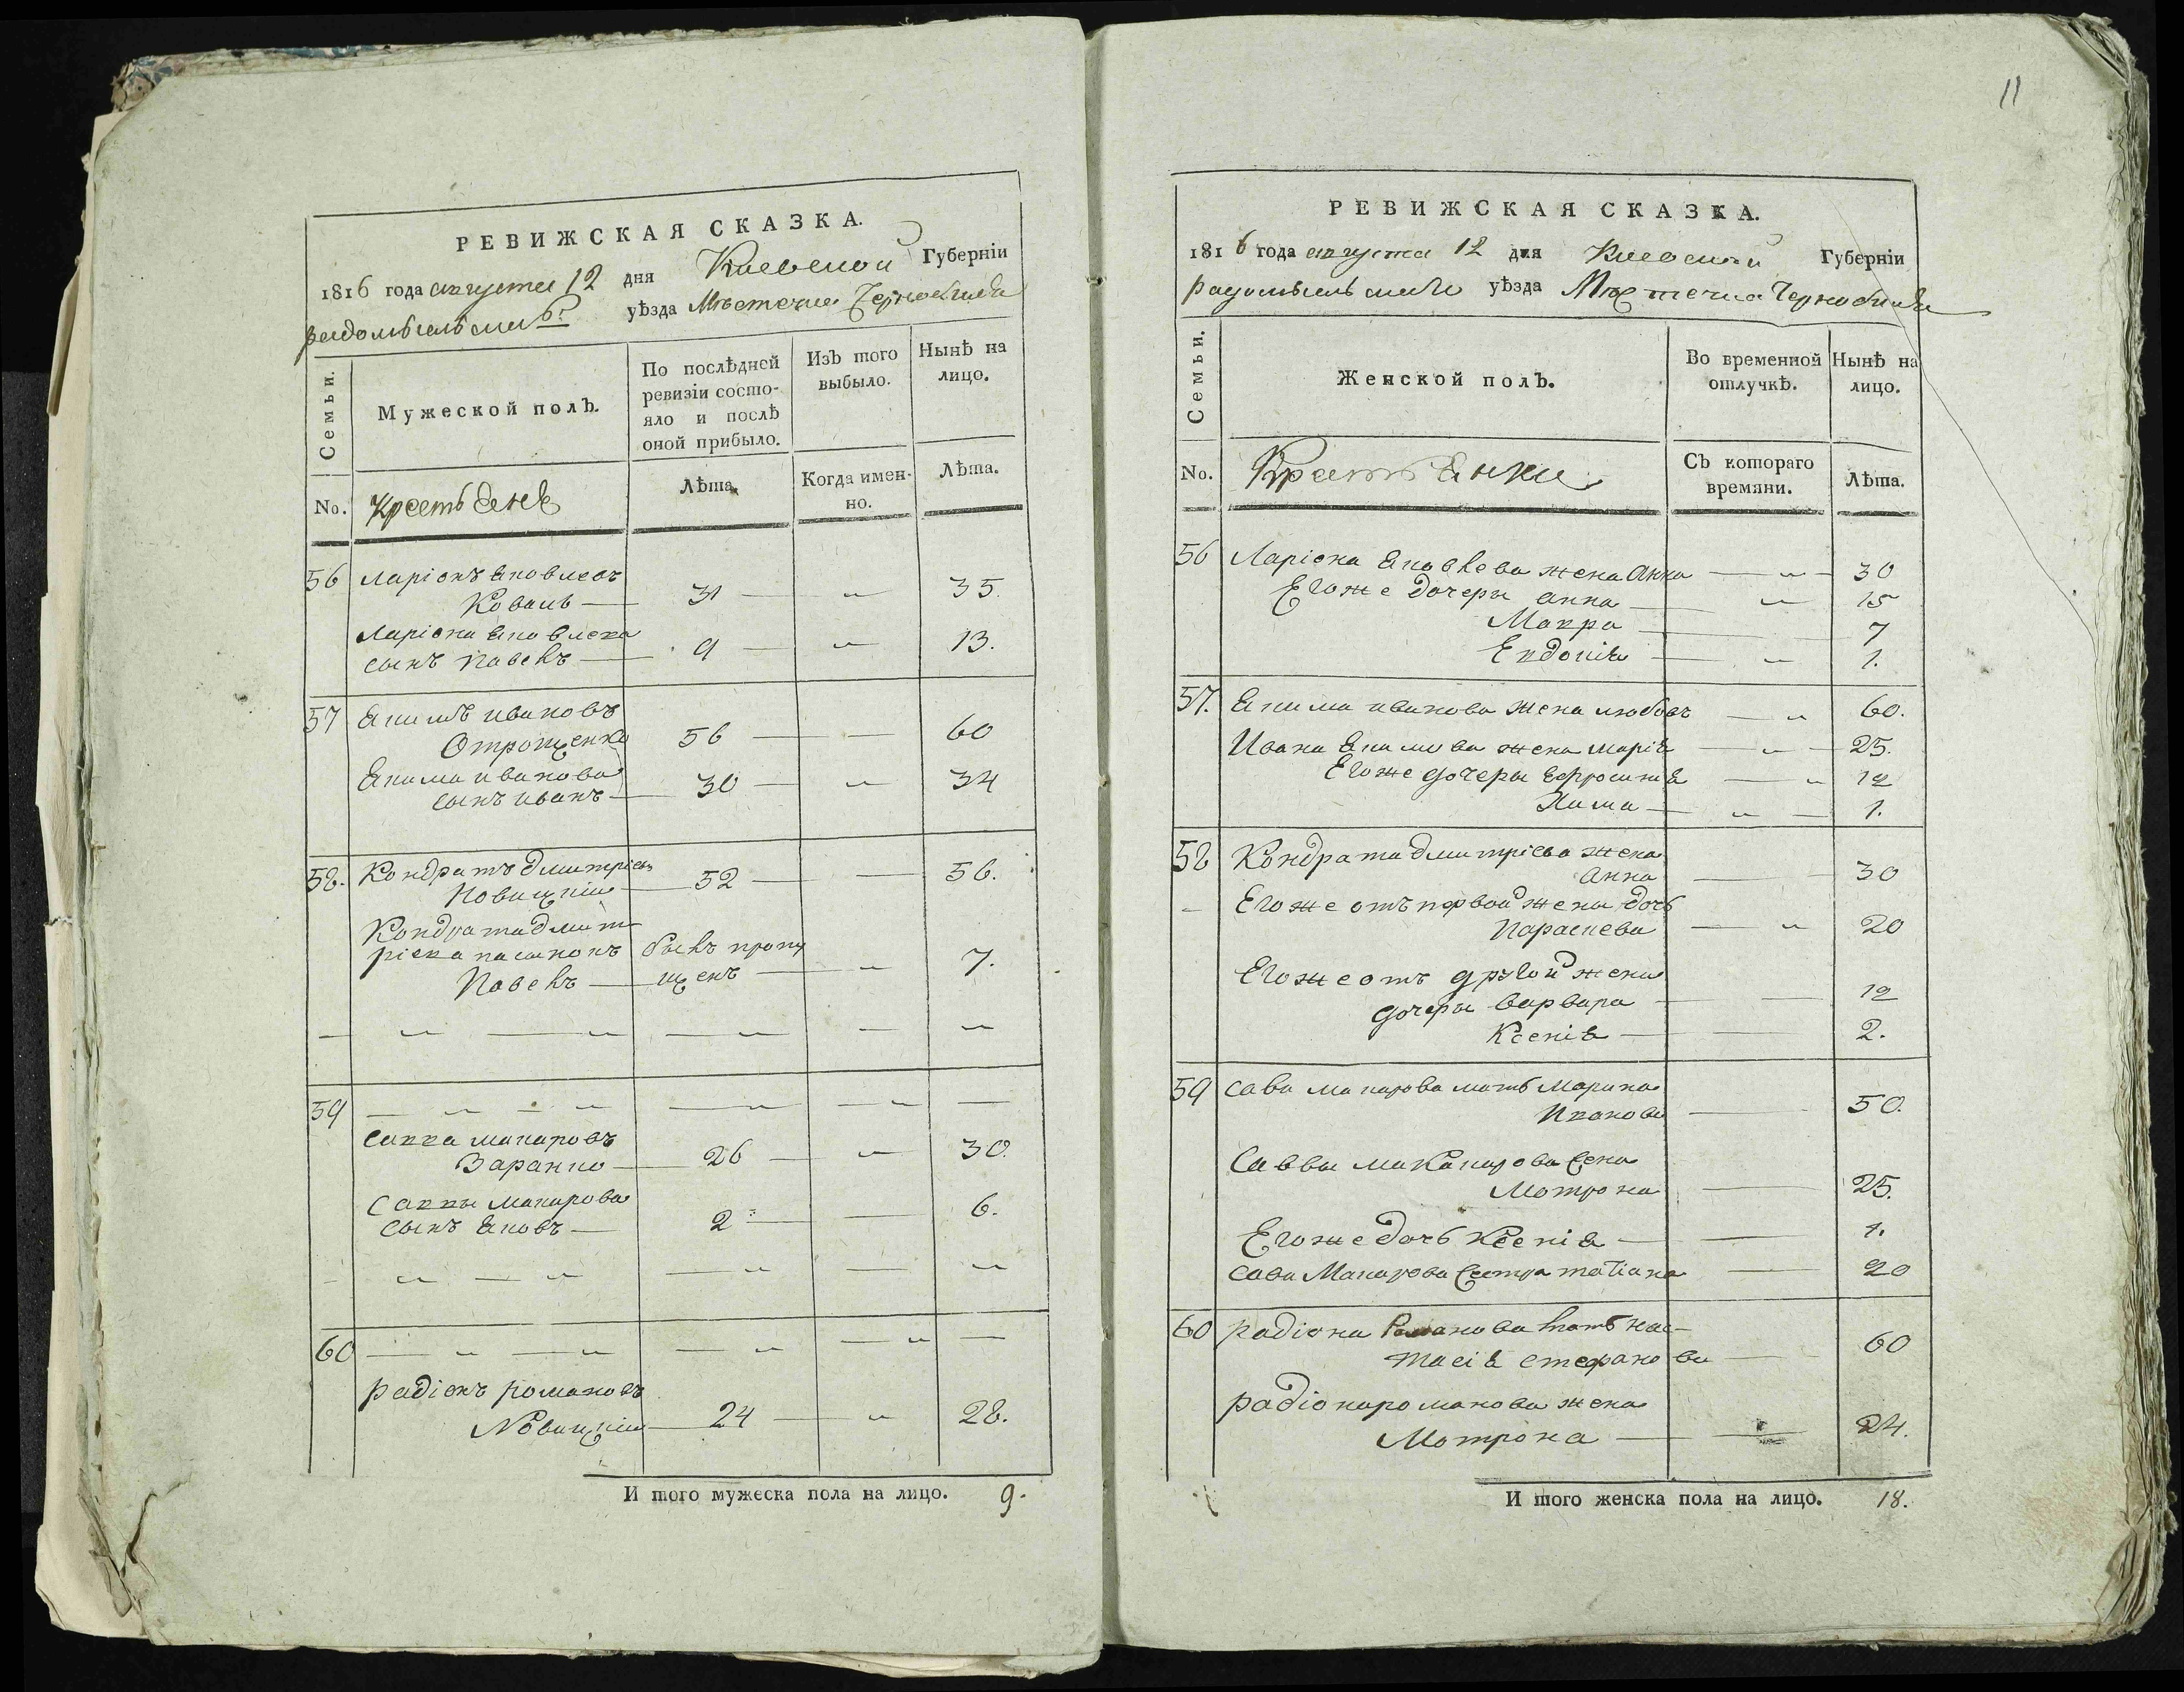 РЕВИЖСКАЯ СКАЗКА.
1816 года августа 12 дня Киевской Губерніи
радомысльскаго уѣзда Мѣстечка Чернобиля
Семьи.
Мужеской полъ.
По послѣдней ревизіи состояло и послѣ оной прибыло.
Изъ того выбыло.
Нынѣ на лицо.
No. Крестьяне
Лѣта.
Когда именно.
Лѣта.
56 Ларіонъ Яковлевъ
Коваль — 31 — „ 35.
Ларіона Яковлева
сынъ Павелъ — 9 — „ 13.
57 Якимъ Ивановъ
Отрощенко 56 — — 60
Якима Иванова
сынъ Иванъ — 30 — „ 34
58. Кондратъ Дмитріевъ
Новицкій — 52 — — 56.
Кондрата Дмит-
ріева пасынокъ былъ пропу
Павелъ — щенъ — „ 7.
59 — „ — „ — „ — „ —
Савва Макаровъ
Заранко — 26 — „ 30.
Саввы Макарова
сынъ Яковъ — 2 — — 6.
60 — „ — „ — „ — „ —
Радіонъ Романовъ
Новицкій — 24 — „ 28.
И того мужеска пола на лицо. 9.
11
РЕВИЖСКАЯ СКАЗКА.
1816 года августа 12 дня Киевской Губерніи
радомысльскаго уѣзда Мѣстечка Чернобиля
Семьи.
Женской полъ.
Во временной отлучкѣ.
Нынѣ на лицо.
No. Крестьянки
Съ котораго времяни.
Лѣта.
56 Ларіона Яковлева жена Анна — „ — 30
Его же дочеры Анна — „ 15
Макра — 7
Евдокія — „ 1.
57. Якима Иванова жена Любовъ — „ 60.
Ивана Якимова жена Марія — „ — 25.
Его же дочеры Ефросинія — „ 12
Хима — „ — 1.
58 Кондрата Дмитріева жена
Анна — 30
Его же отъ первой жены дочь
Параскева — „ 20
Его же отъ другой жены
дочеры Варвара — — 12
Ксенія — — 2.
59 Сави Макарова мать Марина
Иванова — 50.
Саввы Макарова жена
Мотрона — 25.
Его же дочь Ксенія — — 1.
Сави Макарова сестра Татіана — 20
60 Радіона Романова мать Нас-
тасія Стефанова — 60
Радіона Романова жена
Мотрона — — 24.
И того женска пола на лицо. 18.